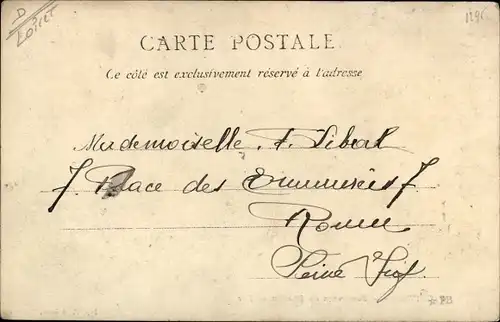 D
Loiret
CARTE POSTALE
Ce côté est exclusivement réservé à l'adresse
Mademoiselle F. Libeal
7. Place des Emmurées 7.
Rouen
Seine Inf.